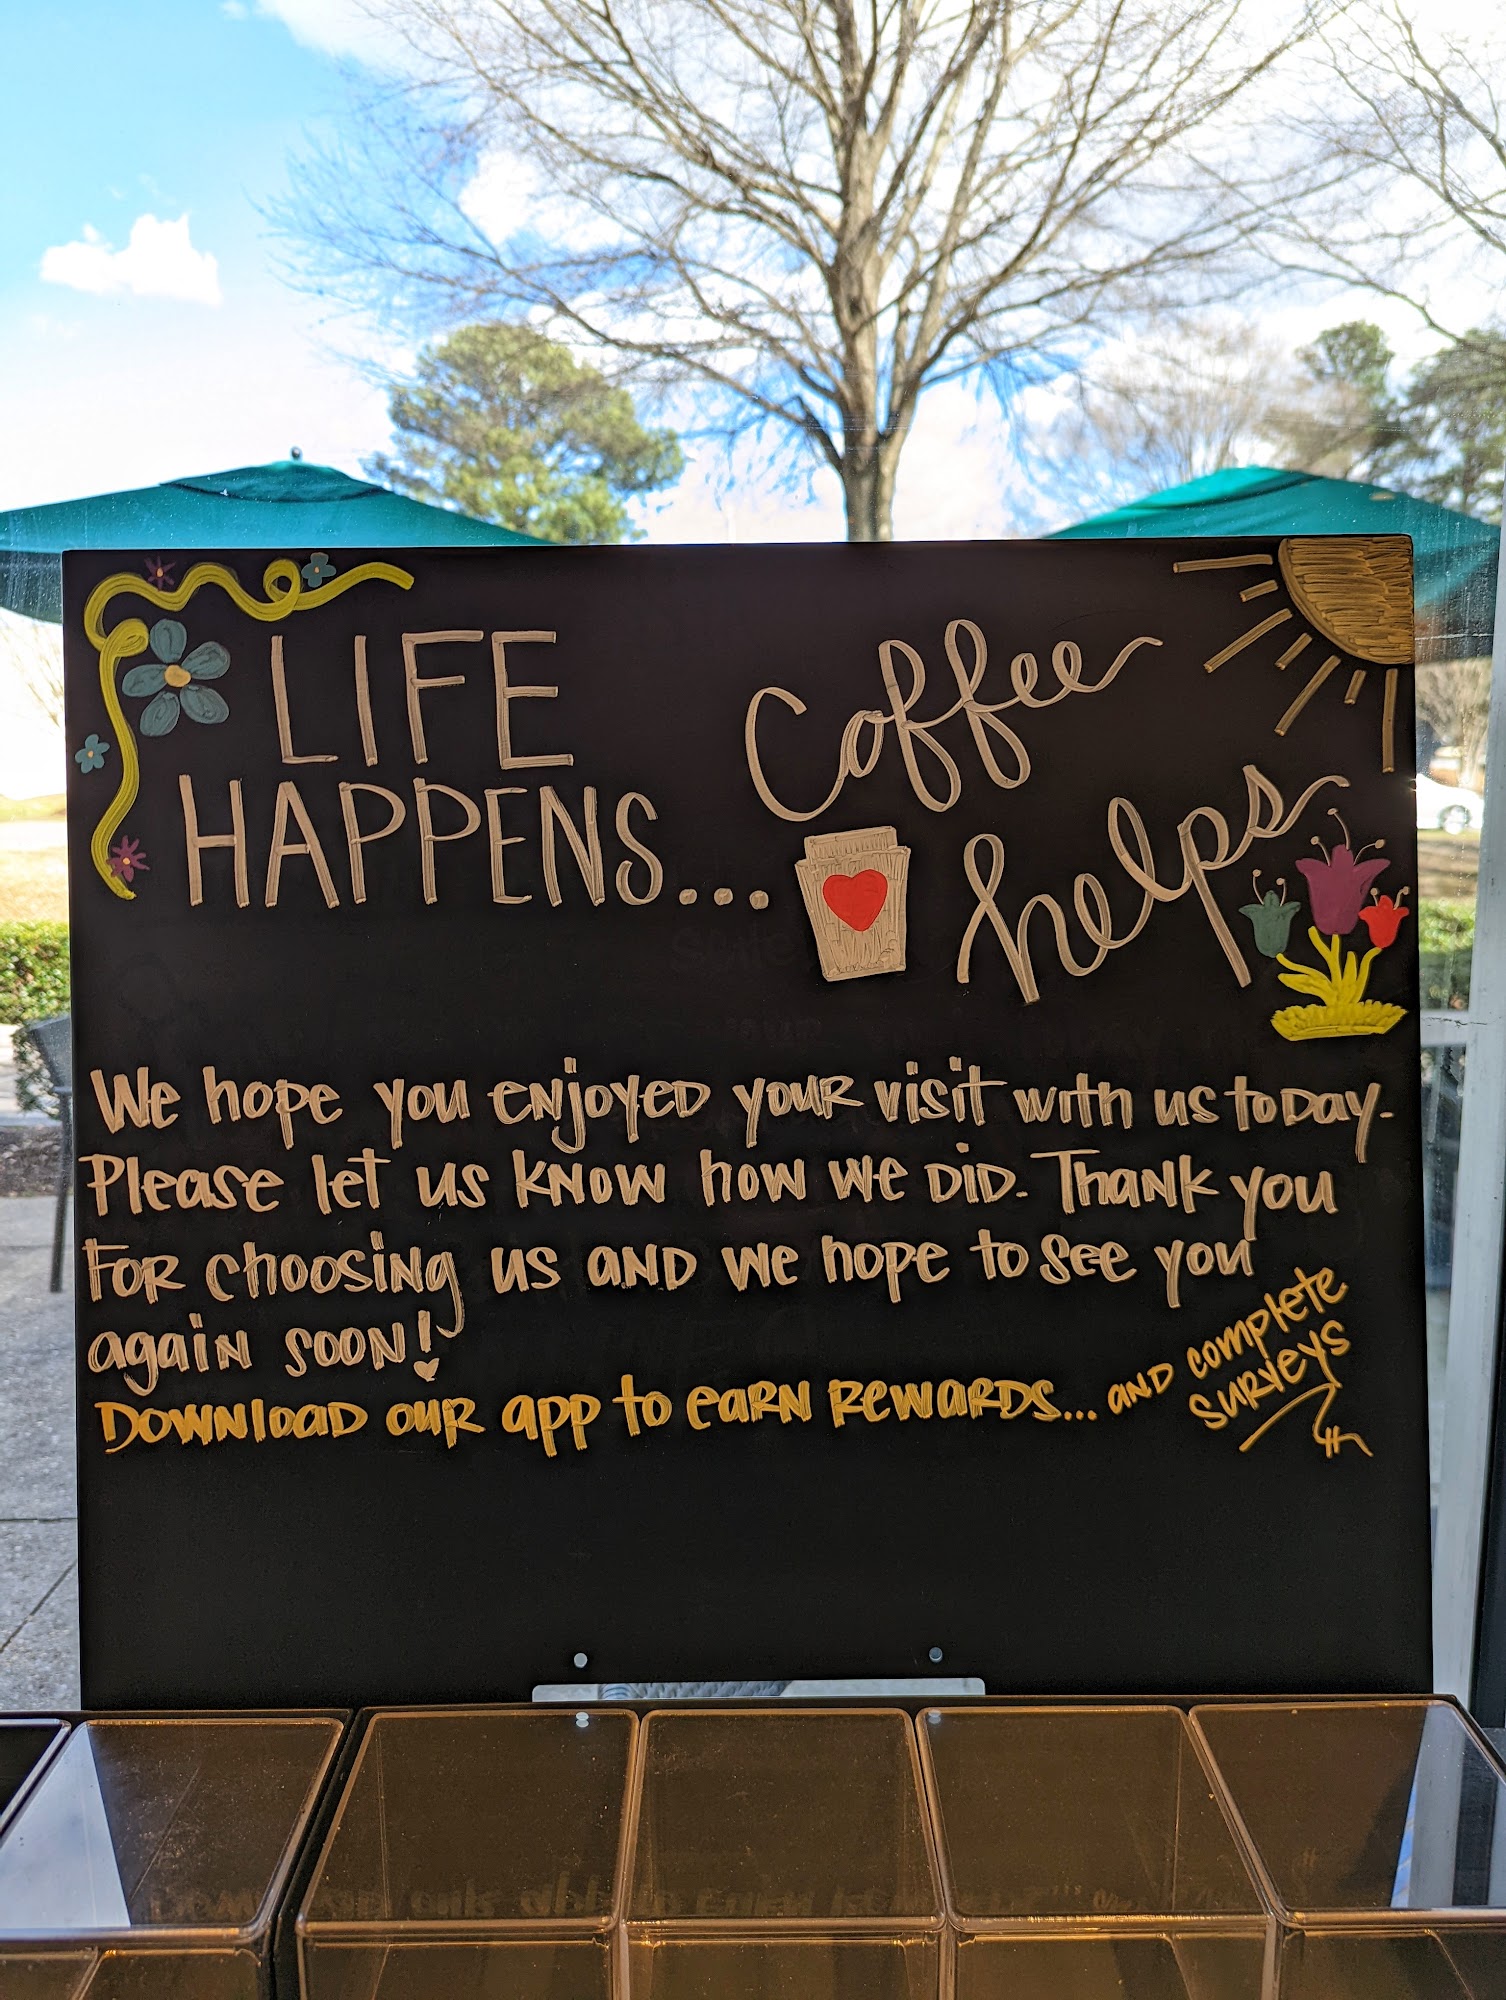 LIFE
HAPPENS...
Coffee
helps
We hope you enjoyed your visit with us today.
Please let us know how we did. Thank you
for choosing us and we hope to see you
again soon!
Download our app to earn rewards... and complete
surveys